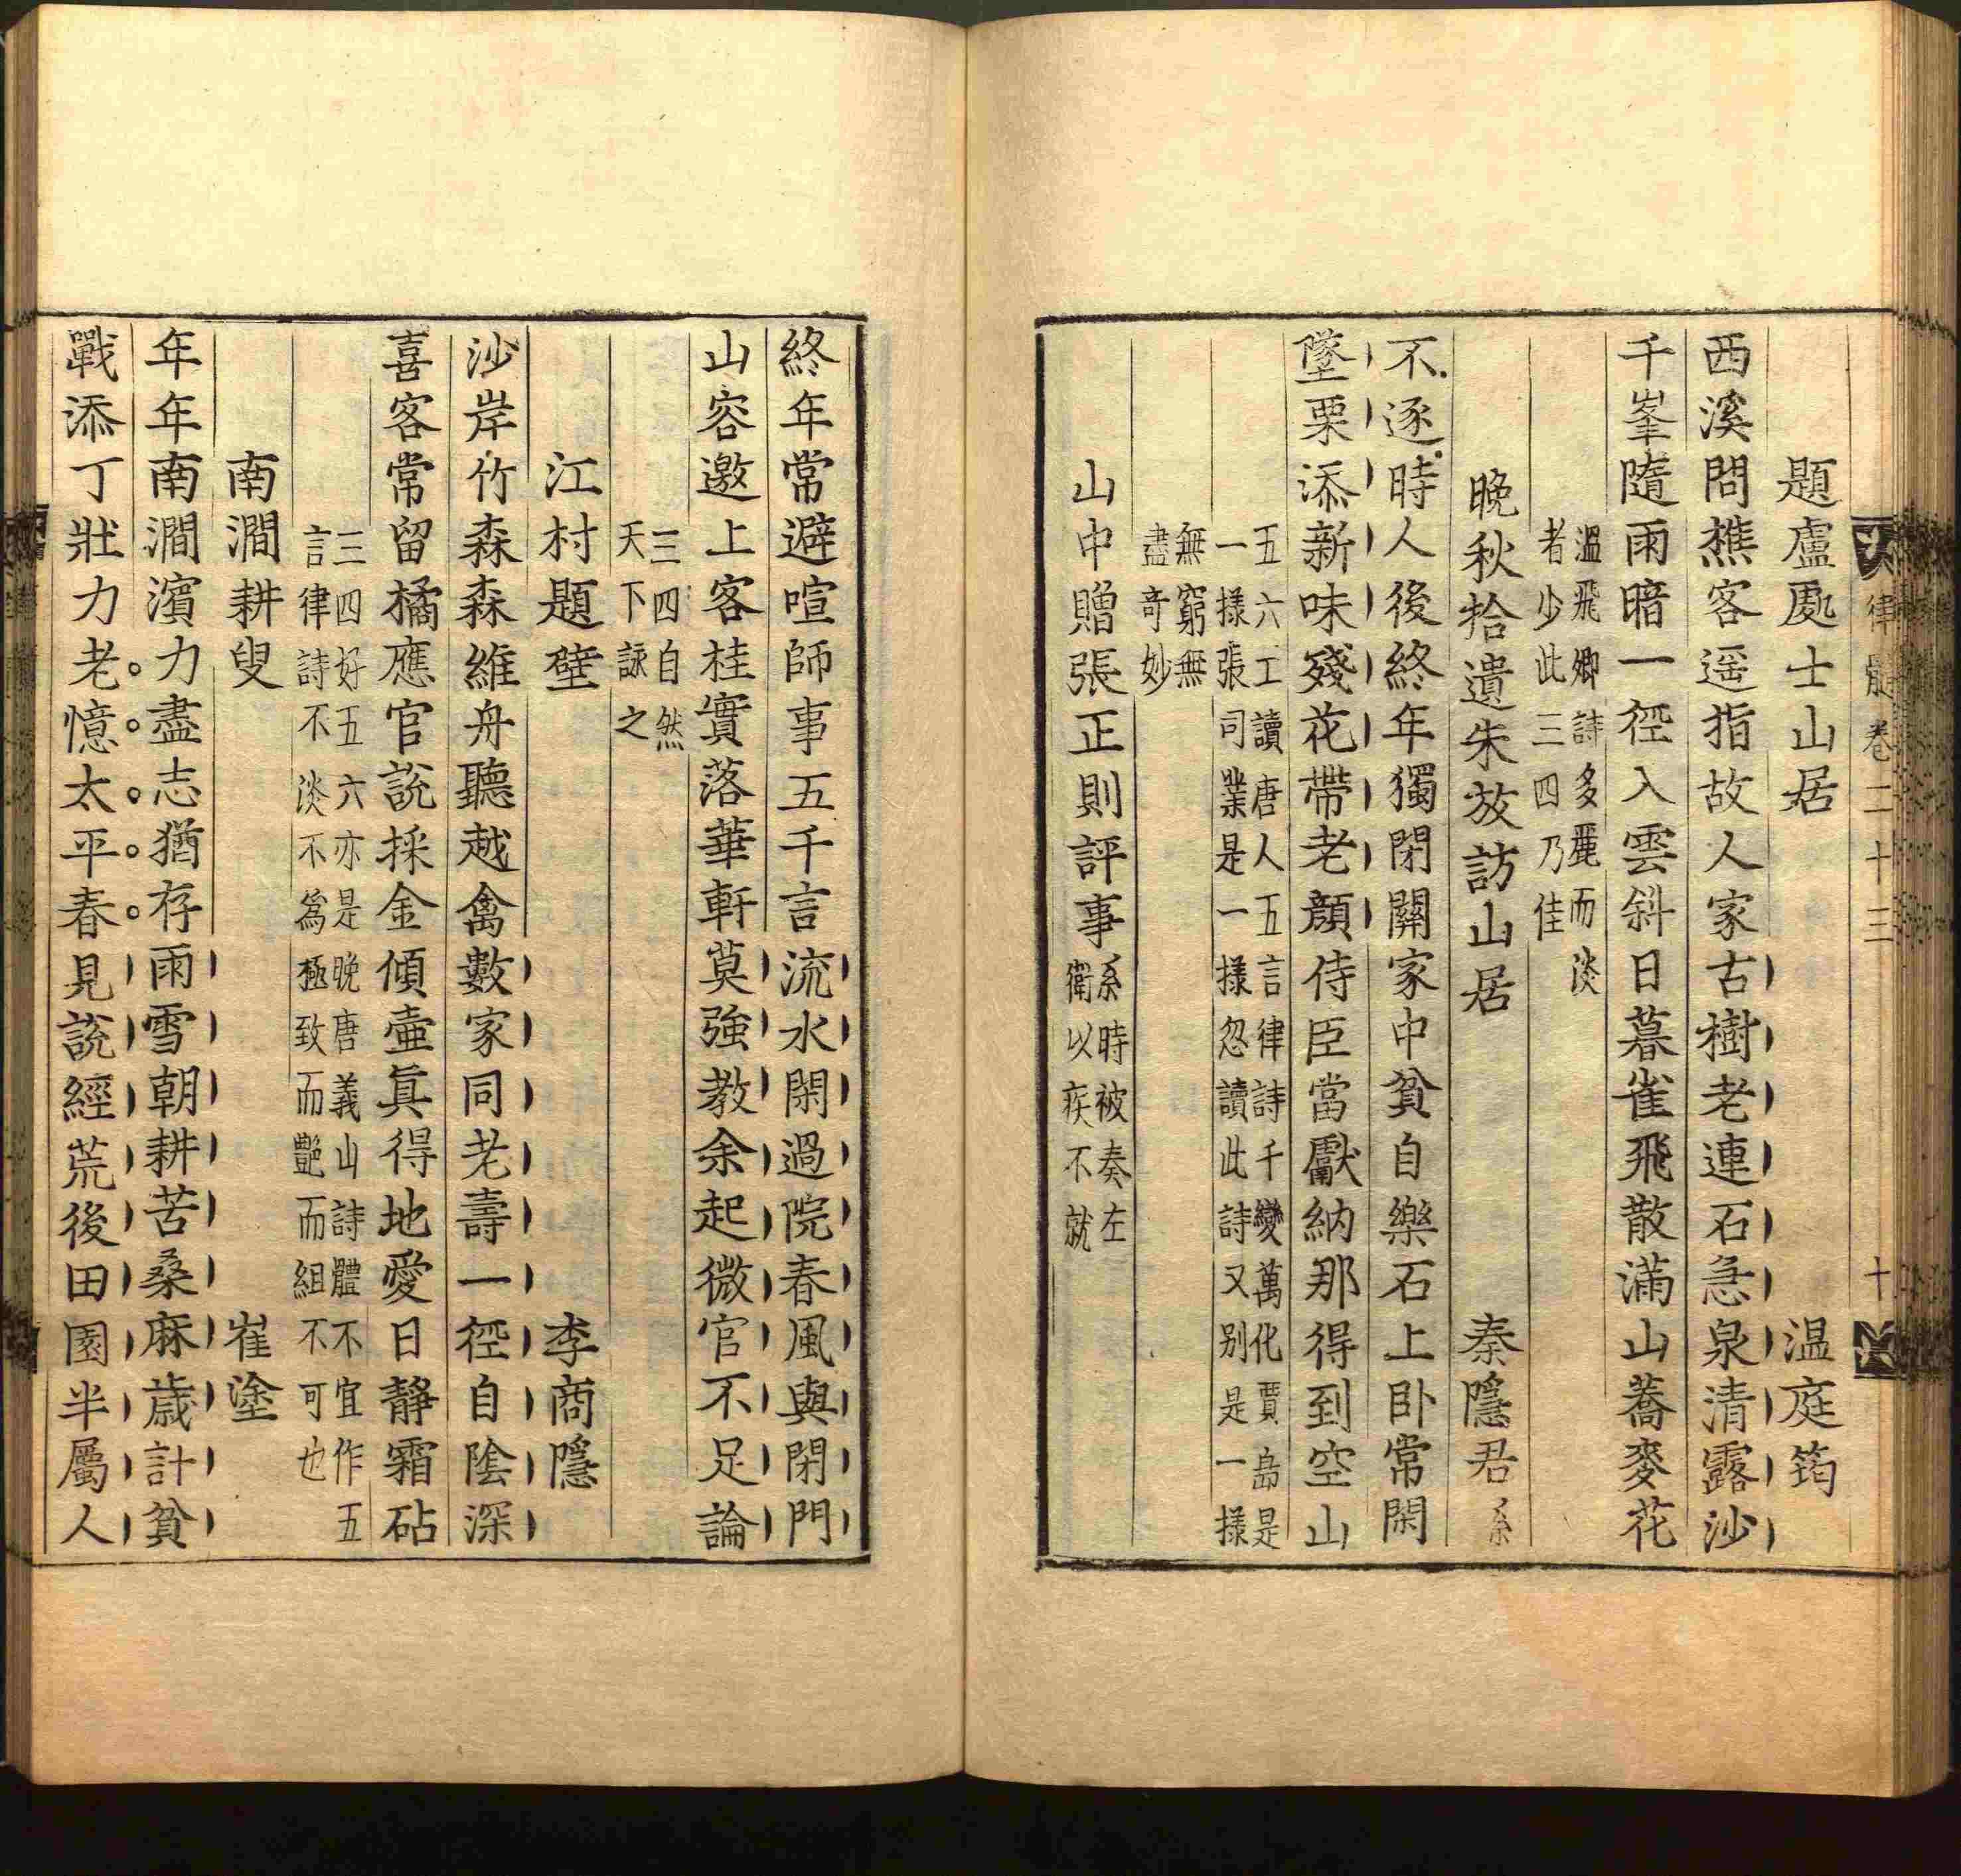 律髓卷二十三
十
題盧處士山居　温庭筠
西溪問樵客遥指故人家古樹老連石急泉清露沙
千峯隨雨暗一徑入雲斜日暮雀飛散滿山蕎麥花
溫飛卿詩多麗而淡
者少此三四乃佳
晚秋拾遺朱放訪山居　秦隱君系
不逐時人後終年獨閉關家中貧自樂石上卧常閑
墜栗添新味殘花帶老顔侍臣當獻納那得到空山
五六工讀唐人五言律詩千變萬化賈島是
一㨾張司業是一㨾忽讀此詩又别是一㨾
無窮無
盡奇妙
山中贈張正則評事系時被奏左
衛以疾不就
終年常避喧師事五千言流水閑過院春風與閉門
山容邀上客桂實落華軒莫強教余起微官不足論
三四自然
天下詠之
江村題壁　李商隱
沙岸竹森森維舟聽越禽數家同老壽一徑自陰深
喜客常留橘應官說採金傾壷眞得地愛日靜霜砧
三四好五六亦是晚唐義山詩體不宜作五
言律詩不淡不爲極致而艷而組不可也
南澗耕叟　崔塗
年年南澗濱力盡志猶存雨雪朝耕苦桑麻歳計貧
戰添丁壯力老憶太平春見說經荒後田園半屬人